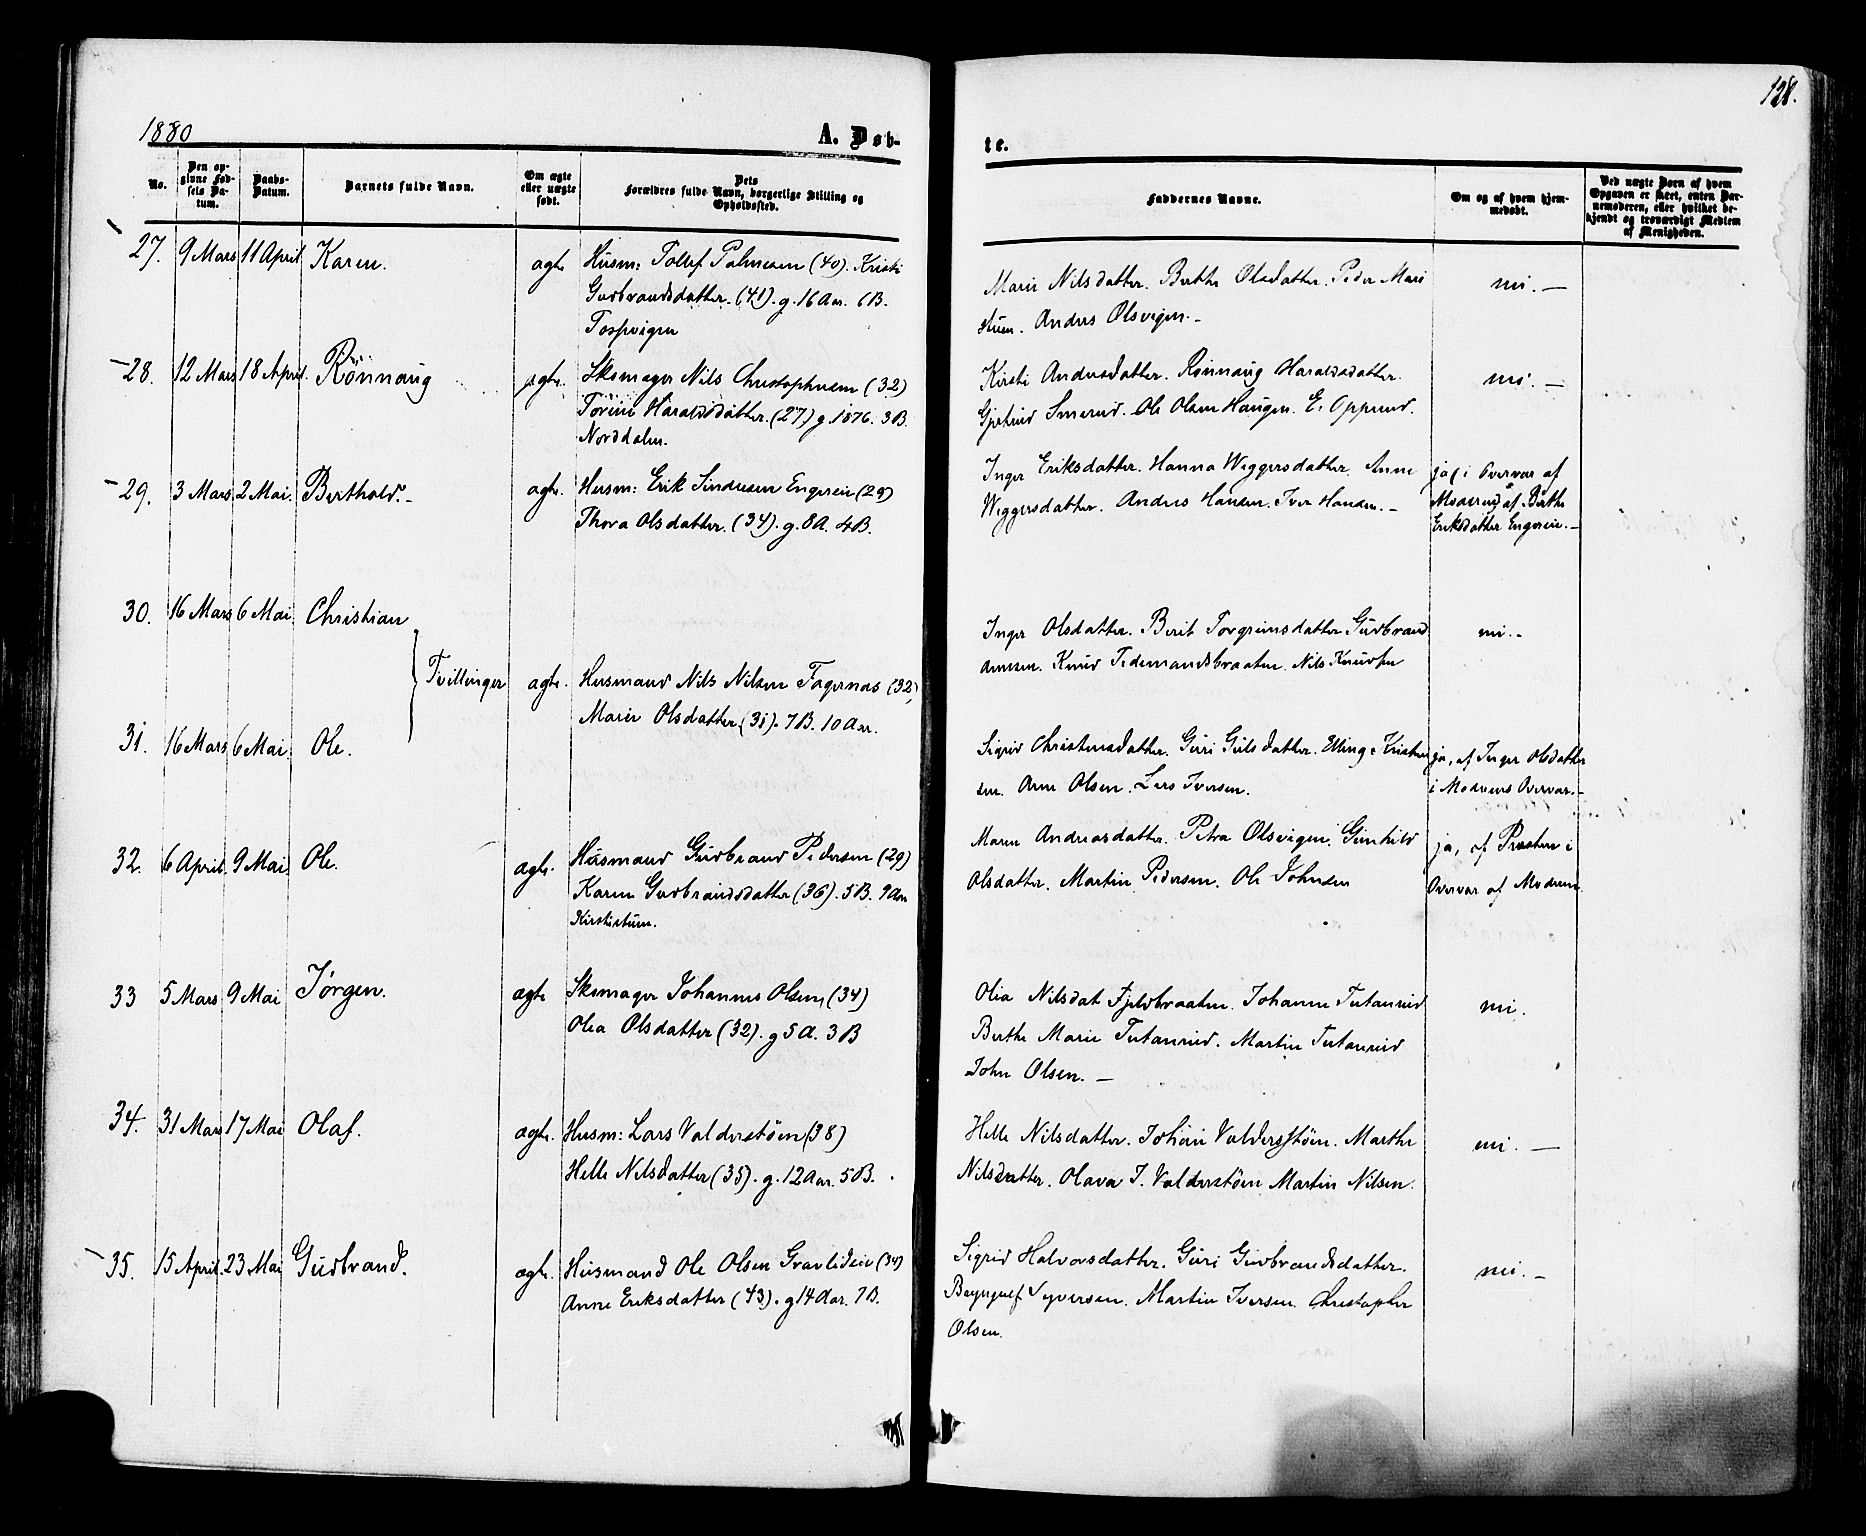 1880
A. Døb-
te.
128.
No.
Den op-
givne Fød-
sels Da-
tum.
Daabs-
Datum.
Barnets fulde Navn.
Om ægte
eller uægte
født.
Dets
Forældres fulde Navn, borgerlige Stilling og
Opholdssted.
Faddernes Navne.
Om og af hvem hjem-
medøbt.
Ved uægte Børn af hvem
Opgaven er skeet, enten Bar-
nemoderen, eller hvilket be-
kjendt og troværdigt Medlem
af Menigheden.
27. 9 Mars 11 April Karen. ægte Husm: Tollef Palmesen (40). Kristi
Gudbrandsdatter. (41). g. 16 Aar. 6B.
Marie Nilsdatter. Berthe Olsdatter. Peder Mari
stuen. Andres Olsvigen.-
nei.-
28. 12 Mars 18 April. Rönnaug ægte. Skomager Nils Christophersen (32)
Haraldsdatter. (27) g. 1876. 3B.
Norddalen.
Kirsti Andersdatter. Rønnaug Haraldsdatter.
Smerud. Ole Olsen Haugen. E. Opperud.
nei.-
29. 3 Mars 2 Mai. Berthold.- ægte. Husm: Erik Engereie (29)
Thora Olsdatter. (34). g. 8A. 4B.
Inger Eriksdatter. Hanna Wiggersdatter. Anne
Wiggersdatter. Andres Hansen. Iver Hansen.-
ja, i Overvær af
Moderen, af Berthe
Eriksdatter Engereie.-
30. 16 Mars 6 Mai Christian
Inger Olsdatter. Berit Torgrimsdatter. Gudbrand
Arnesen. Knud Tidemandsbraaten. Nils Knudsen
nei.-
Tvillinger ægte. Husmand Nils Nilsen Fagernæs (32)
Marie Olsdatter (31). 7B. 10 Aar.
31. 16 Mars 6 Mai. Ole.
Sigrid Christensdatter. Guri Gulsdatter. Elling Kristen
sen. Arne Olsen. Lars Iversen.
ja, af Inger Olsdatter
i Moderens Overvær.-
32. 6 April. 9 Mai. Ole. ægte. Husmand Gudbrand Pedersen (29)
Karen Gudbrandsdatter (36). 5B. 9 Aar
Kirstistuen.
Maren Andreasdatter. Petra Olsvigen. Gunhild
Olsdatter. Martin Pedersen. Ole Johnsen
ja, af Præsten i
Overvær af Moderen.
33 5 Mars 9 Mai Jørgen. ægte Skomager Johannes Olsen, (34)
Olea Olsdatter (32). g 5 A. 3B
Olia Nilsdat Fjeldbraaten. Johanne Tutanrud
Berthe Marie Tutanrud. Martin Tutanrud
John Olsen.-
nei.
34. 31 Mars 17 Mai Olaf. ægte. Husm: Lars Valderstøen (38)
Helle Nilsdatter (35). g. 12 Aar. 5B.
Helle Nilsdatter. Johan Valderstøen. Marthe
Nilsdatter. Olava J. Valderstøen. Martin Nilsen.
nei.-
35. 15 April. 23 Mai Gudbrand. ægte. Husmand Ole Olsen Gravlideie (34)
Anne Eriksdatter (43). g 14 Aar. 7B.
Sigrid Halvorsdatter. Guri Gudbrandsdatter.
Syversen. Martin Iversen. Christopher
Olsen.
nei.-